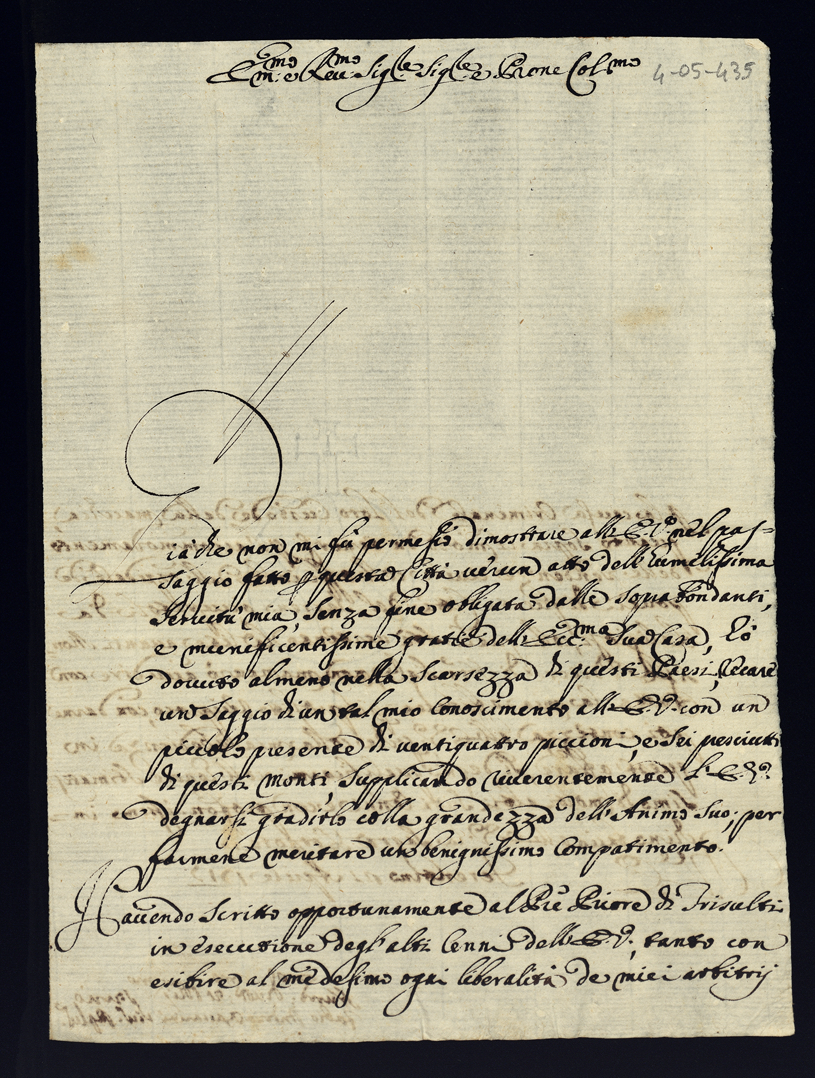 Em.mo e Rev.mo Sig.re Sig.re e P̃rone Col.mo
4-05-435
Già che non mi fù permesso dimostrare all'E.V. nel pas-
saggio fatto p questa Città verun atto dell'humilissima
servitù mia, senza fine obligata dalle sopra bondanti,
e munificentissime gratie dell'Ecc.ma Sua Casa, hò
douuto almeno nella scarsezza di questi Paesi, recare
un saggio di un tal mio conoscimento all'E.V. con un
piccolo presente di uentiquattro piccioni, e sei presciutti
di questi monti, supplicando riuerentemente l'E.V.
degnarsi gradirlo colla grandezza dell'Animo suo, per
farmene meritare un benignissimo compatimento.
Hauendo scritto opportunamente al P̃re Priore di Trisulti
in esecutione degl'alti cenni dell'E.V., tanto con
esibire al medesimo ogni liberalità de miei arbitrij